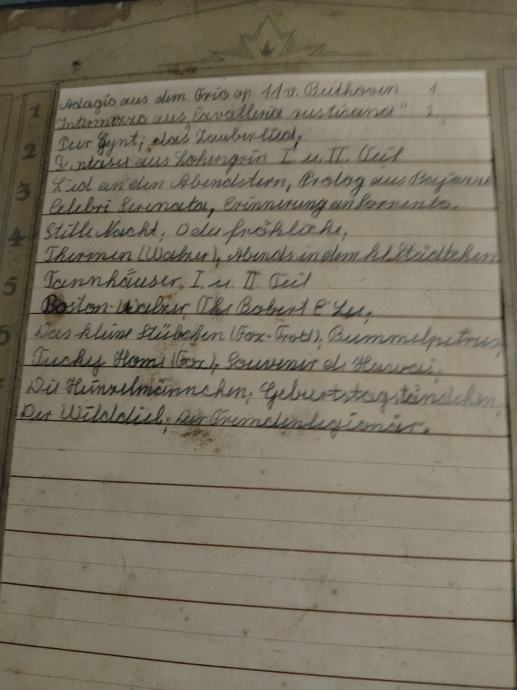 Adagio aus dem Trio op. 11 v. Beethoven 1
1 Intermezzo aus „Cavalleria rusticana" 2.
Peer Gynt; das Zauberlied,
2 Fantasei aus Lohengrin I u. II. Teil
3 Lied an den Abendstern, Prolog aus Bajazzo
Celebri Serenata, Erinnerung an Sorrento.
4 Stille Nacht, O du fröhliche,
Thermen (Walzer), Abends in dem kl. Städtchen
5 Tannhäuser I u. II Teil
Boston-Walzer, The Robert E Lee,
6 Das kleine Stübchen (Fox-Trott), Bummelpetrus,
Tucky Home (Fox), Souvenir de Hawai,
Die Heinzelmännchen, Geburtstagständchen,
Der Wilddieb, Der Fremdenlegionär.